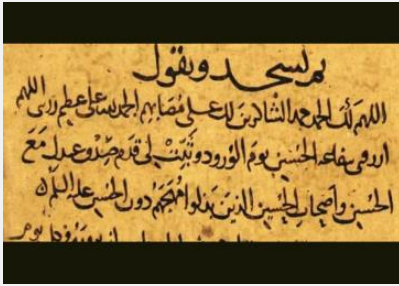 ثم تسجد وتقول
اللهم لك الحمد حمد الشاكرين لك على مصابهم الحمد لله على عظيم رزيتي اللهم
ارزقني شفاعة الحسين يوم الورود وثبت لي قدم صدق عندك مع
الحسين واصحاب الحسين الذين بذلوا مهجهم دون الحسين عليه السلام